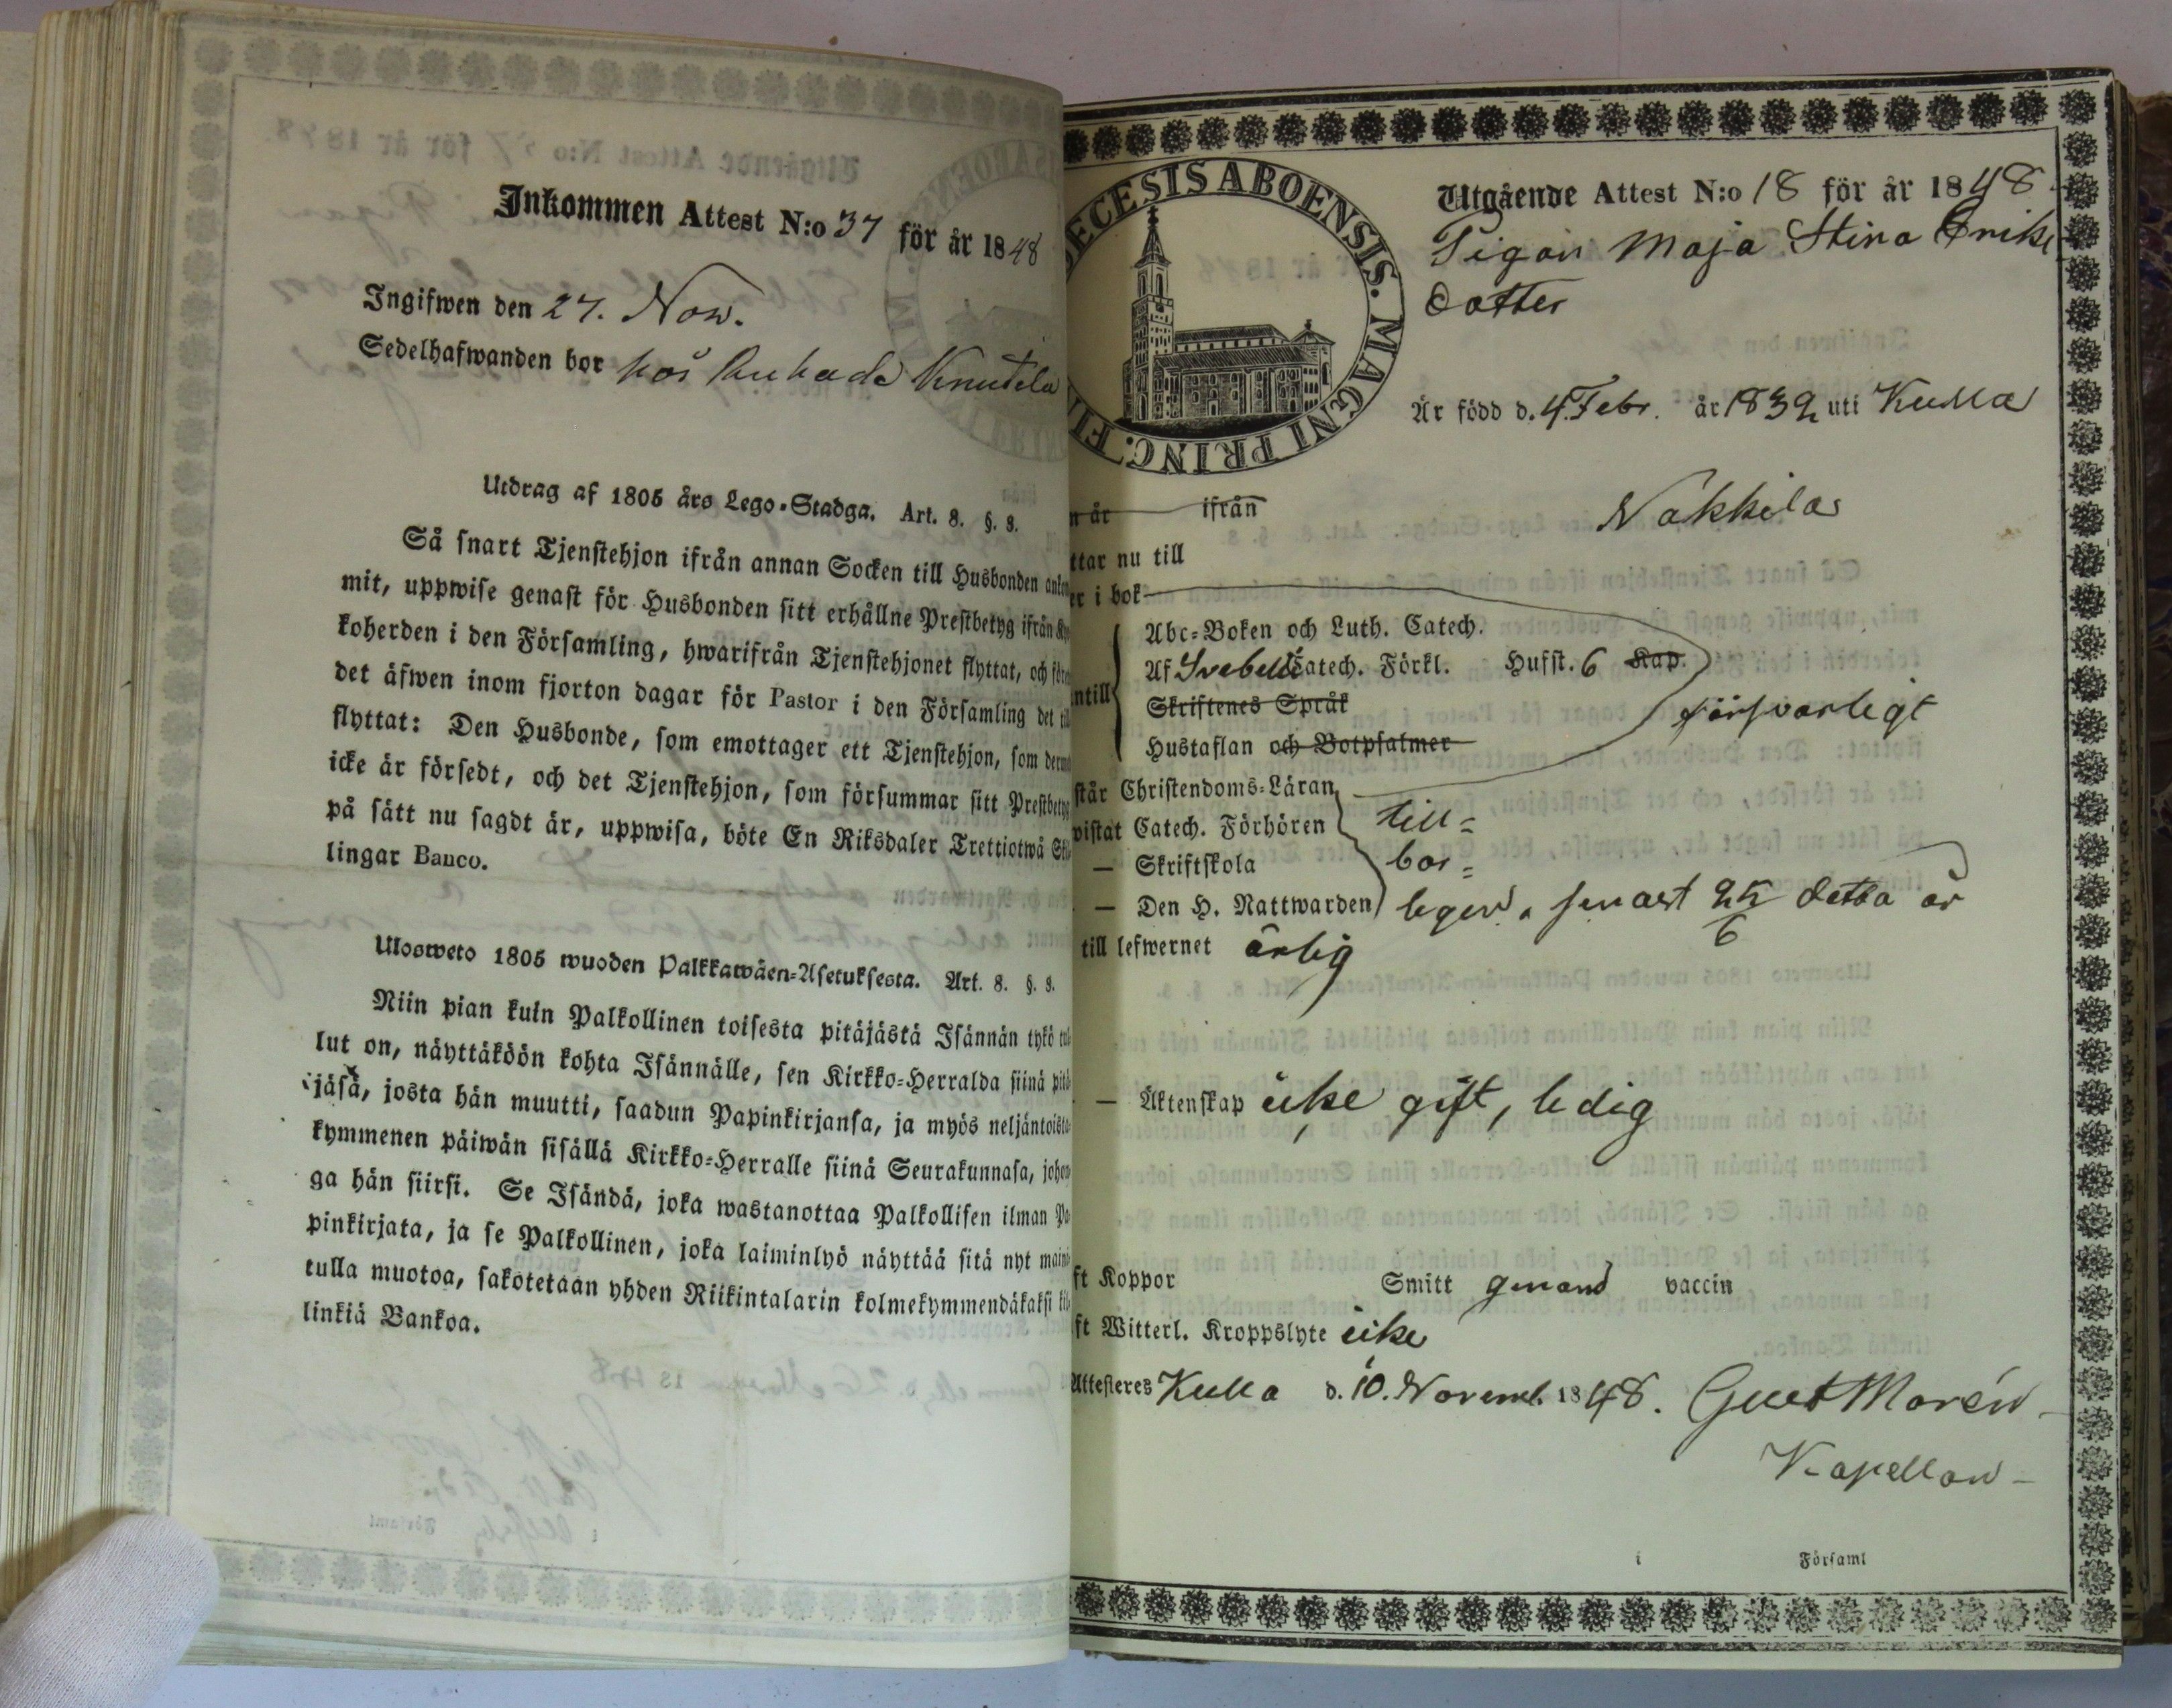 Inkommen Attest N:o 37 för år 1848
Ingifwen den 27. Now.
Sedelhafwanden bor hos Knutila
Utdrag af 1805 års Lego-Stadga. Art. 8. §. 8.
Så snart Tjenstehjon ifrån annan Socken till Husbonden ankom
mit, uppwise genast för Husbonden sitt erhållne Prestbetyg ifrån Ky
koherden i den Församling, hwarifrån Tjenstehjonet flyttat, och före
det äfwen inom fjorton dagar för Pastor i den Församling det till
flyttat: Den Husbonde, som emottager ett Tjenstehjon, som derm
icke är försedt, och det Tjenstehjon, som försummar sitt Prestbetyg
på sätt nu sagdt är, uppwisa, böte En Riksdaler Trettiotwå Skil
lingar Banco.
Ulosweto 1805 wuoden Palkkawäen-Asetuksesta. Art. 8. §. 8.
Niin pian kuin Palkollinen toisesta pitäjästä Isännän tykö tul
lut on, näyttäköön kohta Isännälle, sen Kirkko-Herralda siinä pitä
jäsä, josta hän muutti, saadun Papinkirjansa, ja myös neljäntoista
kymmenen päiwän sisällä Kirkko-Herralle siinä Seurakunnasa, johon
ga hän siirsi. Se Isändä, joka wastanottaa Palkollisen ilman Pa
pinkirjata, ja se Palkollinen, joka laiminlyö näyttää sitä nyt maini
tulla muotoa, sakotetaan yhden Riikintalarin kolmekymmendäkaksi kil
linkiä Bankoa.
ECESIS ABOENSIS. MAGNI PRINC. FI
Utgående Attest N:o 18 för år 1848
Pigan Maja Stina Eriks
dotter
Är född d. 4. Febr. år 1832 uti Kulla
n år ifrån
ttar nu till Nakkila
er i bok
Abc-Boken och Luth. Catech.
Af Svebelii Catech. Förkl. Hufst. 6 Kap.
ntill Skriftenes Språk försvarligt
Hustaflan och Botpsalmer
står Christendoms-Läran
vistat Catech. Förhören till=
— Skriftskola bör=
— Den H. Nattwarden ligen, senast 25/6 detta år
till lefwernet ärlig
— Äktenskap icke gift, ledig
ft Koppor Smitt genom vaccin
ft Witterl. Kroppslyte icke
Attesteres Kulla d. 10. Novemb. 1848. Gust Morén
Kapellan
i Församl